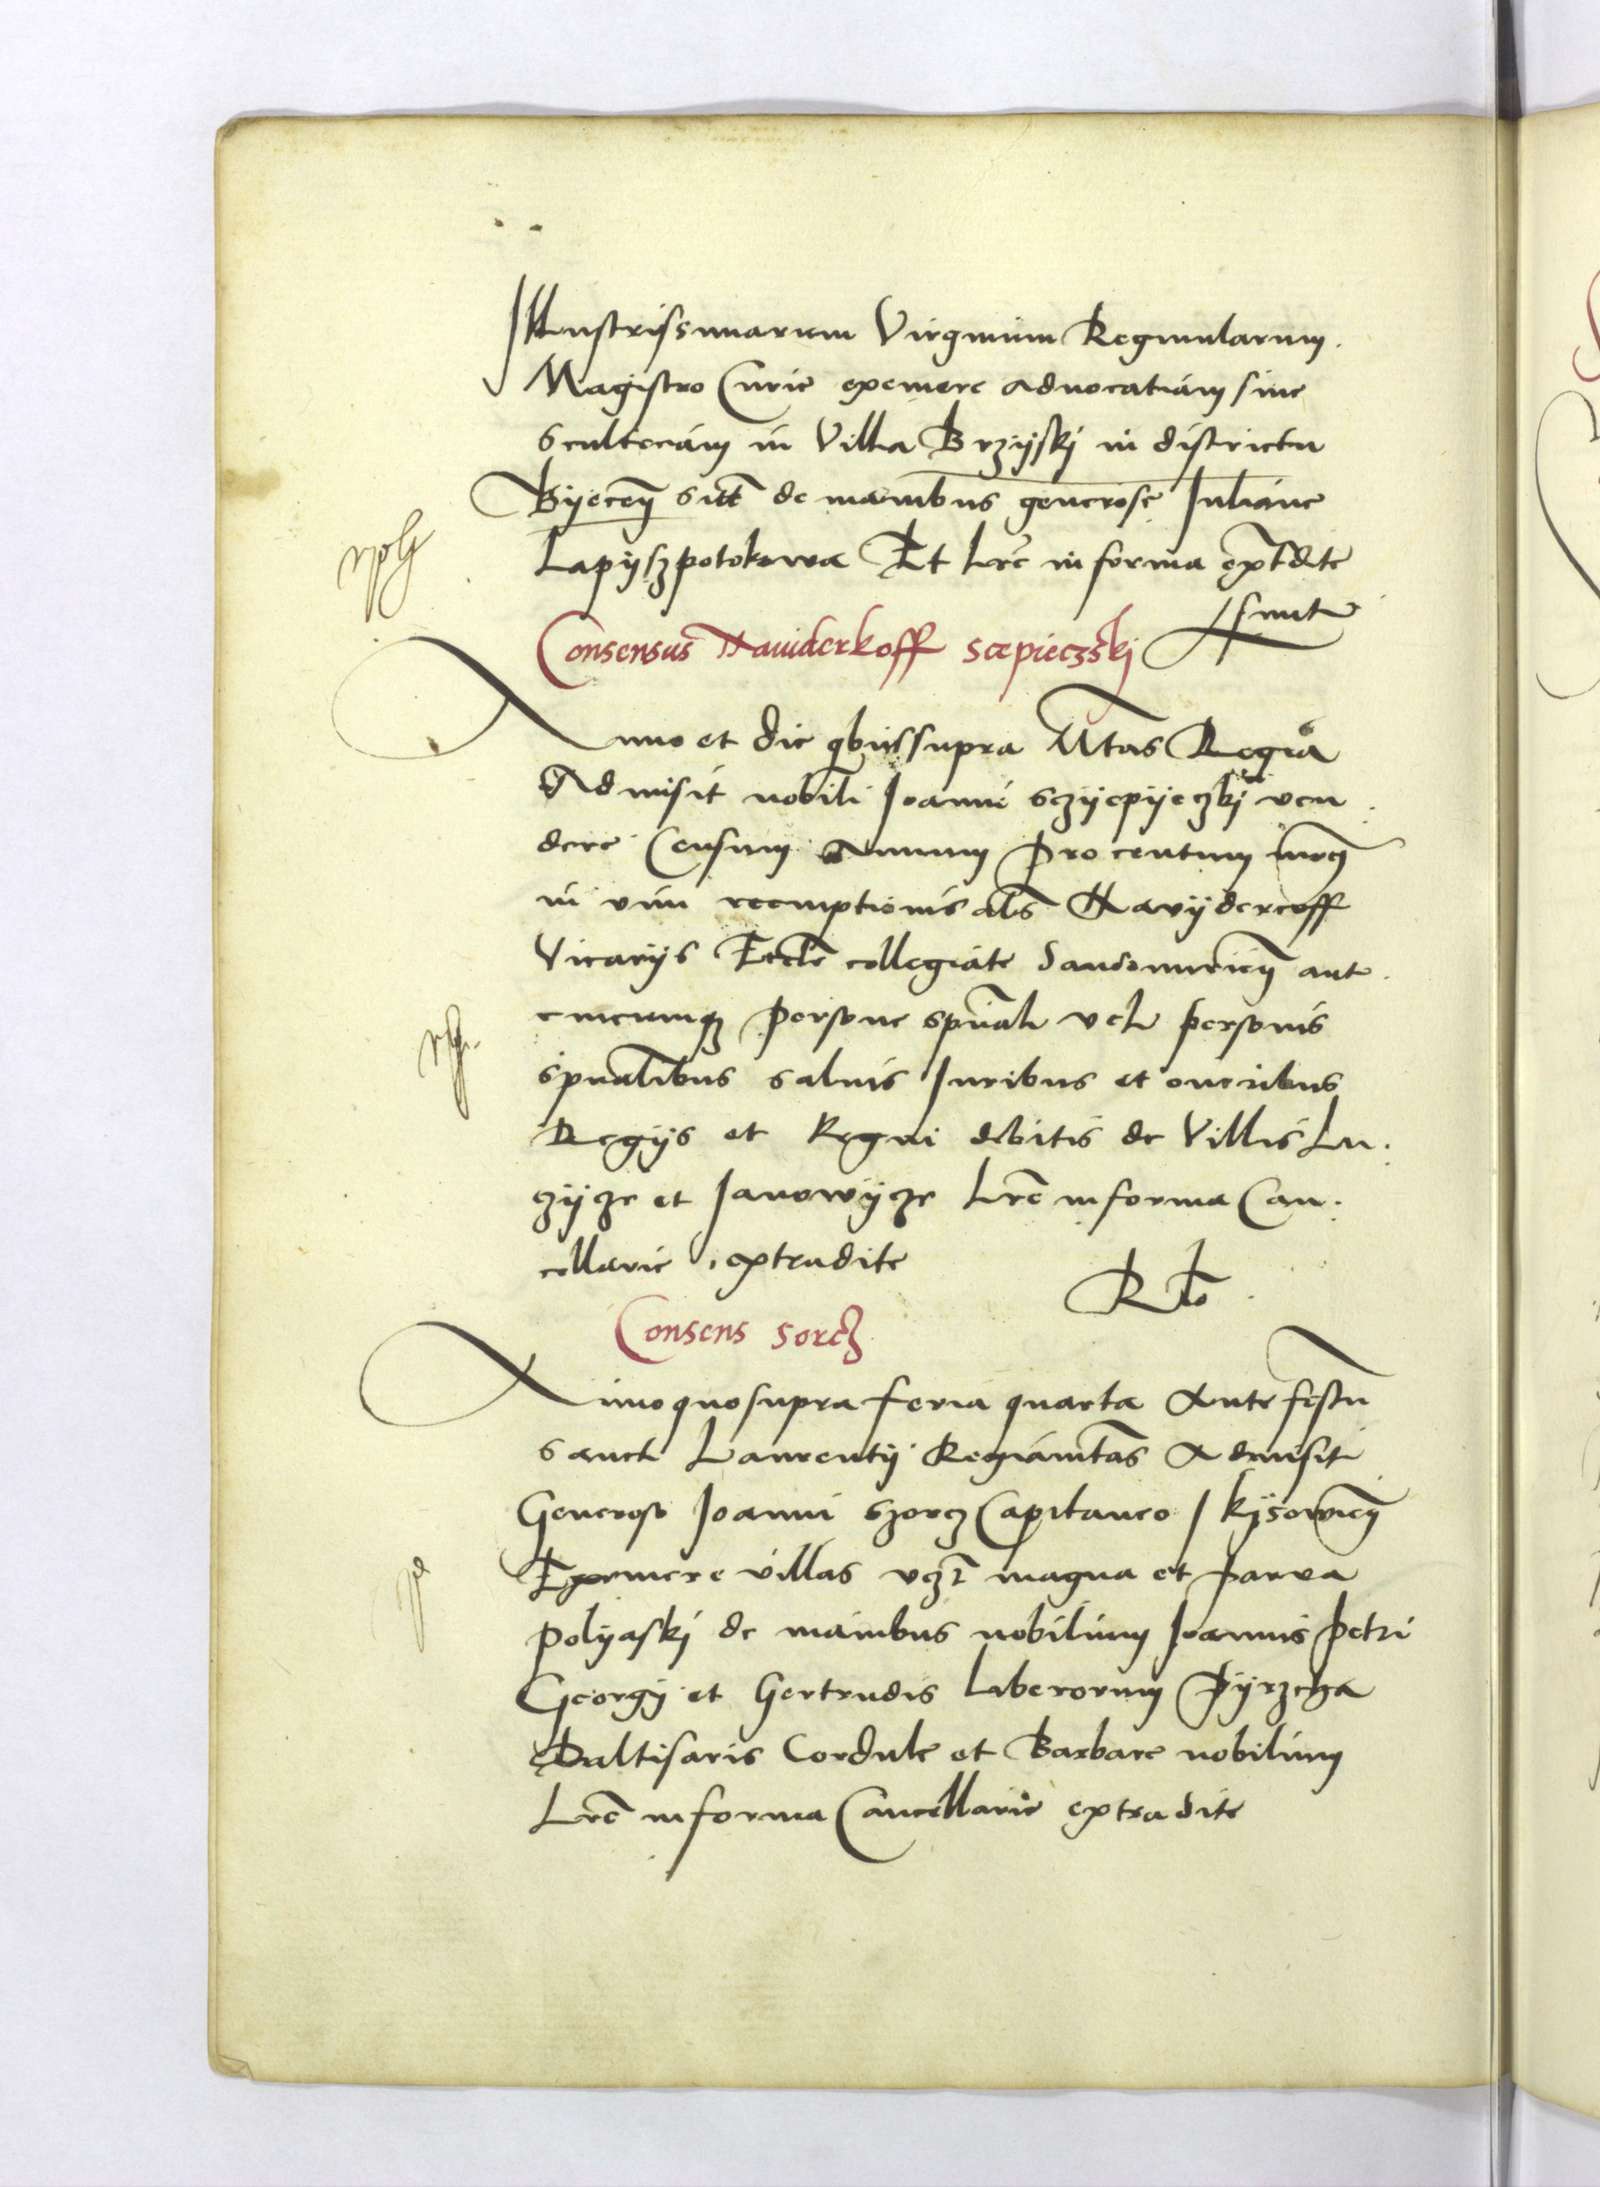 Illustrissimarum Virginum Reginularum.
Magistro Curie eximere advocatiam sive
Sculteciam in Villa Brzÿskÿ in districtu
Bÿecen̄ sitt̄ de manibus generose Juliane
Lapÿszpotokowa Et Lr̄e in forma ext̄dite
sunt
Consensus Naviderkoff Scepieczskj
Anno et die qbus supra Mtas Regia
Admisit nobili Joanni Sczÿepÿeczkj ven
dere Censum Annuum Pro centum mrc̄
in vim reemptionis al̄s Navÿdercoff
Vicarÿs Eccl̄e collegiate Sandomirien̄ aut
cuicumqȝ Persone spūali vel personis
spūalibus salvis Juribus et oneribus
Regÿs et Regni debitis de Villis Lu
czÿcze et Janowÿcze Lr̄e in forma Can
cellarie extradite
Rl̄o
Consens Sorcz
Anno quo supra feria quarta Ante festū
sancti Laurentÿ Regia mtas Admisit
Generoso Joanni Szorcz Capitaneo Ikÿsowien̄
Eximere villas vcz̄t magna et parva
Polÿaskj de manibus nobilium Joannis Petri
Georgÿ et Gertrudis Liberorum Pÿrzcha
Baltisaris Cordule et Barbare nobilium
Lr̄e in forma Cancellarie extradite